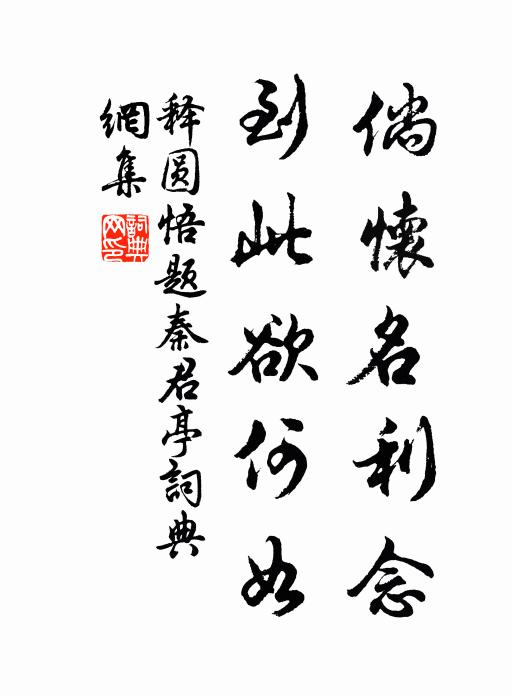 倘懷名利念
到此欲何如
释圆悟题秦君亭詞典
網集
詞典网印